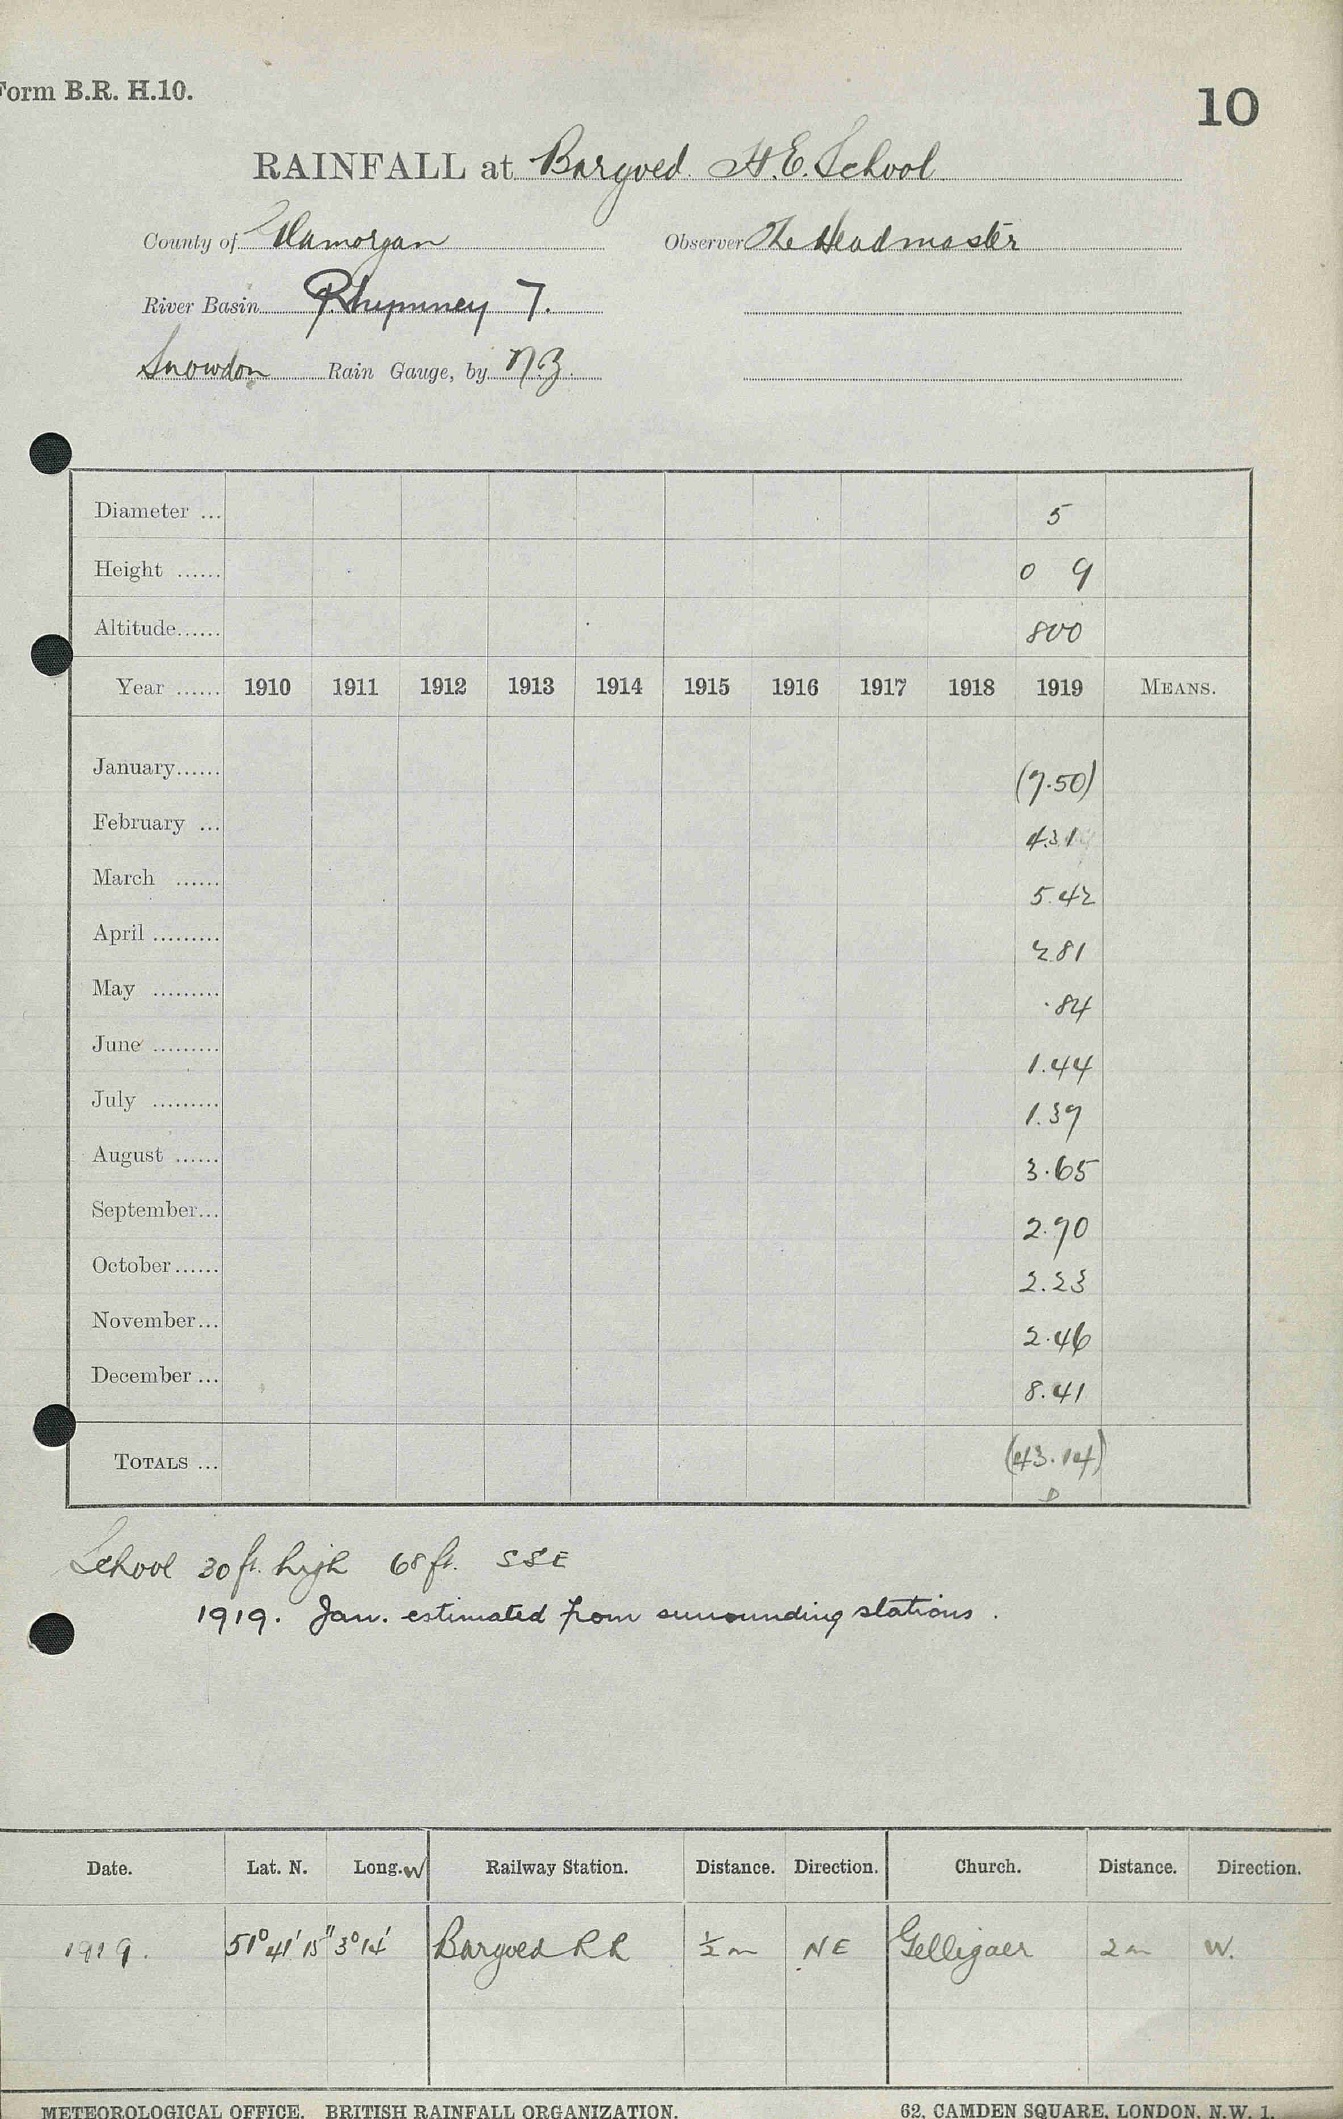 Form B.R. H.10.
10
RAINFALL at Bargoed H.E. School
County of Glamorgan Observer The Headmaster
River Basin Rhymney 7.
Snowdon Rain Gauge, by N.Z.
Diameter ... 5
Height ...... 0 9
Altitude...... 800
Year ...... 1910 1911 1912 1913 1914 1915 1916 1917 1918 1919 MEANS.
January...... (7.50)
February ... 4.31
March ...... 5.42
April ......... 2.81
May ......... .84
June ......... 1.44
July ......... 1.37
August ...... 3.65
September... 2.70
October...... 2.23
November... 2.46
December ... 8.41
TOTALS ... (43.14)
D
School 30 ft. high 68 ft. SSE
1919. Jan. estimated from surrounding stations.
Date. Lat. N. Long. W Railway Station. Distance. Direction. Church. Distance. Direction.
1919. 51° 41' 15" 3° 14' Bargoed RR ½ m NE Gelligaer 2 m W.
METEOROLOGICAL OFFICE. BRITISH RAINFALL ORGANIZATION. 62, CAMDEN SQUARE, LONDON, N.W. 1.